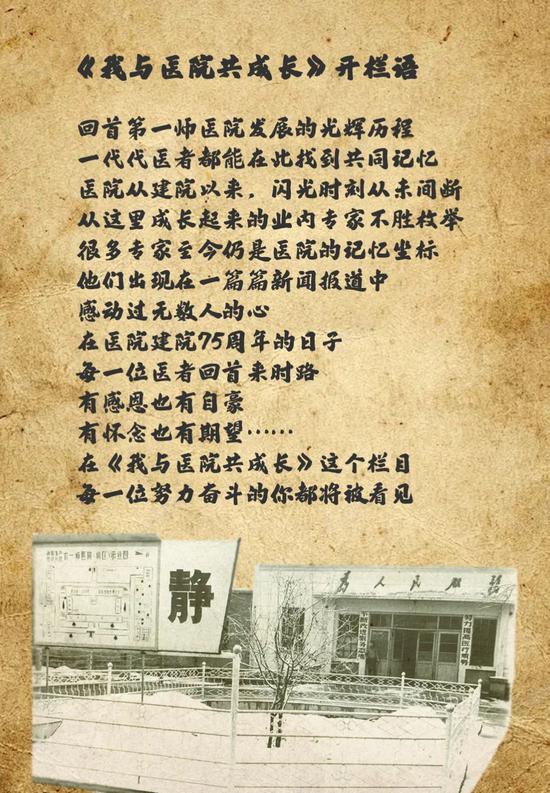 《我与医院共成长》开栏语
回首第一师医院发展的光辉历程
一代代医者都能在此找到共同记忆
医院从建院以来，闪光时刻从未间断
从这里成长起来的业内专家不胜枚举
很多专家至今仍是医院的记忆坐标
他们出现在一篇篇新闻报道中
感动过无数人的心
在医院建院75周年的日子
每一位医者回首来时路
有感恩也有自豪
有怀念也有期望……
在《我与医院共成长》这个栏目
每一位努力奋斗的你都将被看见
静
为人民服务